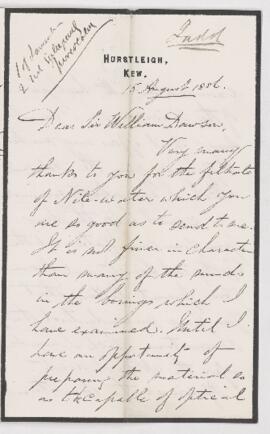 Judd
HURSTLEIGH,
KEW.
15 August 1886.
Dear Sir William Dawson,
Very many
thanks to you for the filtrate
of Nile-water which you
are so good as to send to me.
It is not finer in character
than many of the muds
in the borings which I
have examined. Until I
have an opportunity of
preparing the material so
as capable of optical